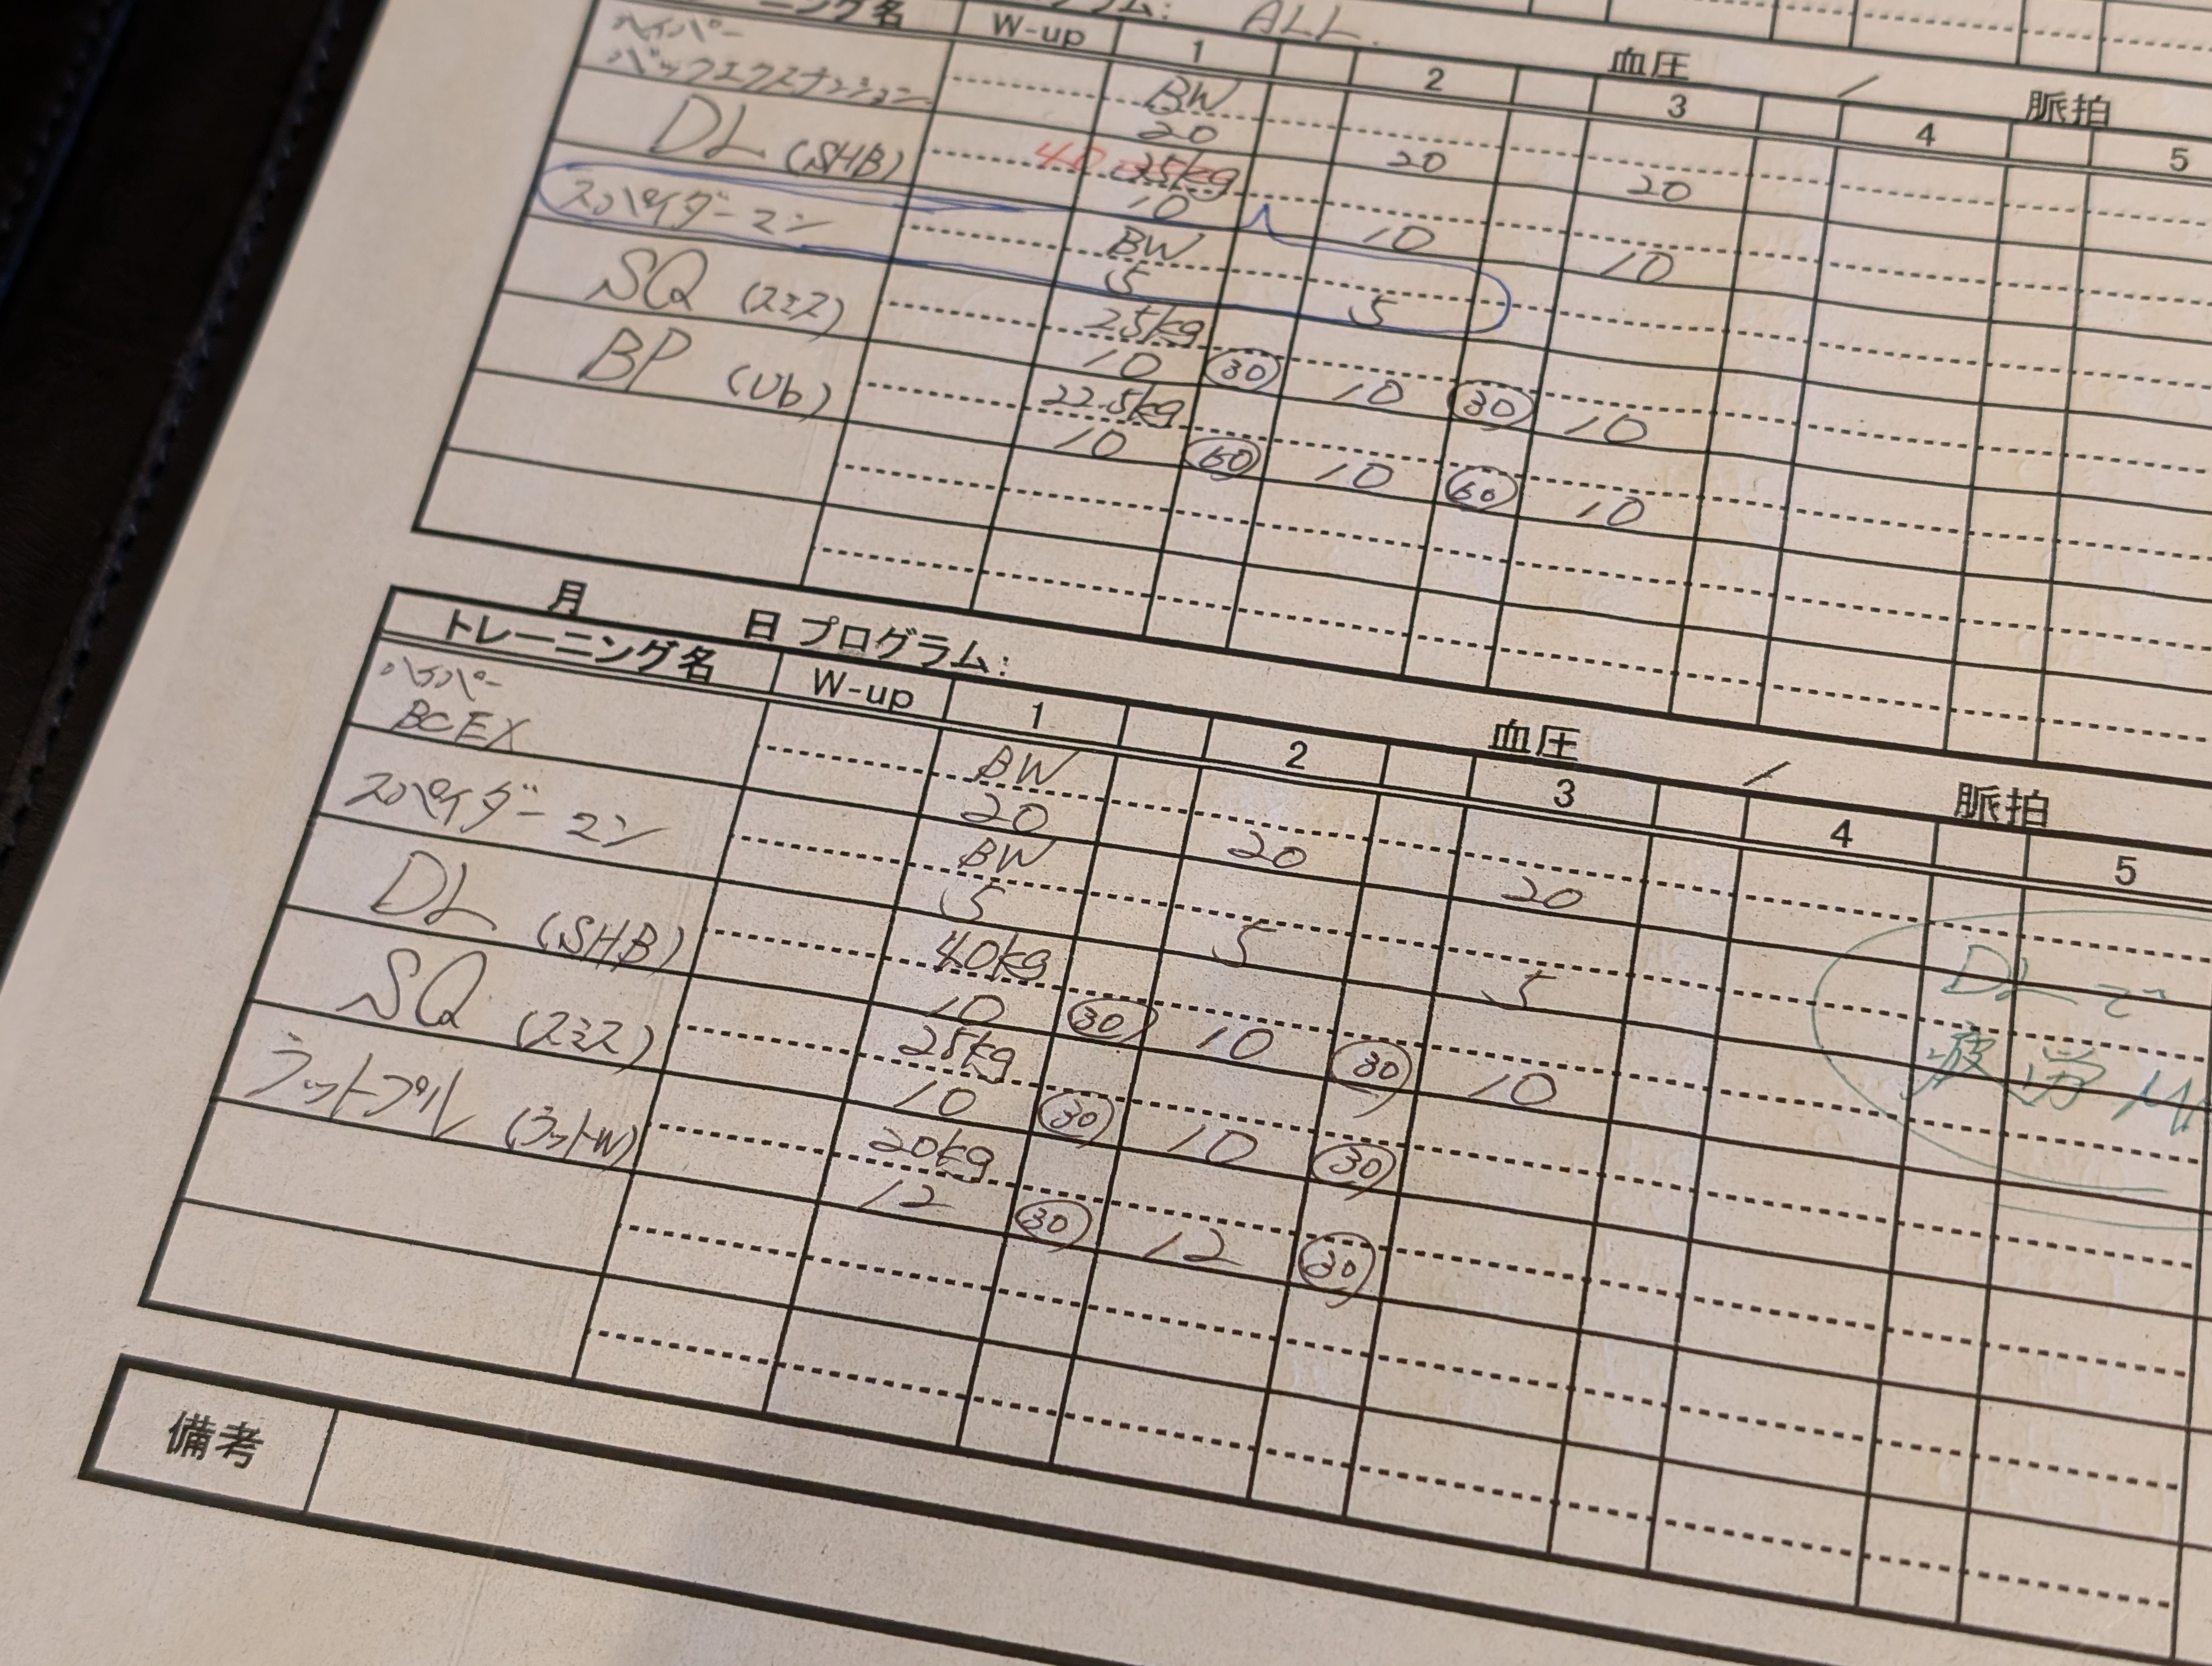 ーニング名 W-up ラム: ALL.
1 2 血圧 / 脈拍
3 4 5
ハイパー
バックエクステンション BW
20 20 20
DL (SHB) 40 25kg
10 10 10
スパイダーマン BW
5 5
SQ (スミス) 25kg
10 30 10 30 10
BP (Ub) 22.5kg
10 60 10 60 10
月 日 プログラム:
血圧 / 脈拍
トレーニング名 W-up 1 2 3 4 5
ハイパー
BCEX BW
20 20 20
スパイダーマン BW
5 5 5
DL (SHB) 40kg
10 30 10 30 10
SQ (スミス) 25kg
10 30 10 30
ラットプル (ラットW) 20kg
12 30 12 30
DLで
疲労
備考